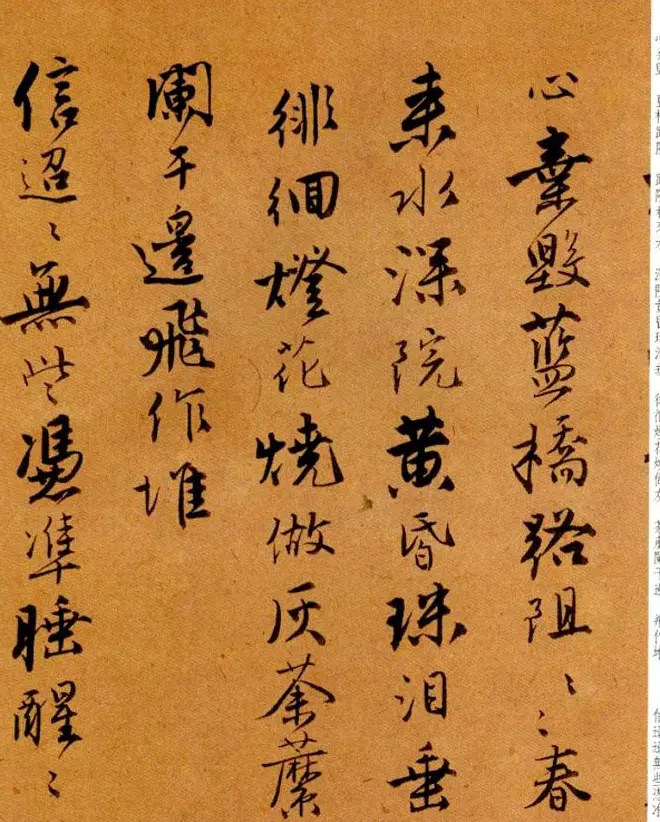 心棄毀藍橋路阻ゝゝ春
来水深院黄昏珠泪垂
徘徊燈花燒做灰荼蘼
闌干邊飛作堆
信迢ゝ無些憑準睡醒ゝ